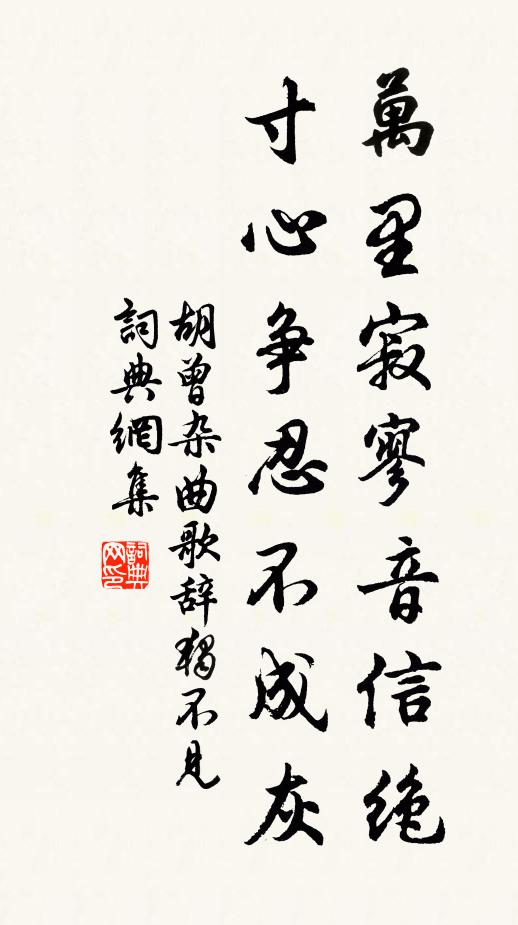 萬里寂寥音信絶
寸心争忍不成灰
胡曾杂曲歌辞獨不見
詞典網集
詞典網印